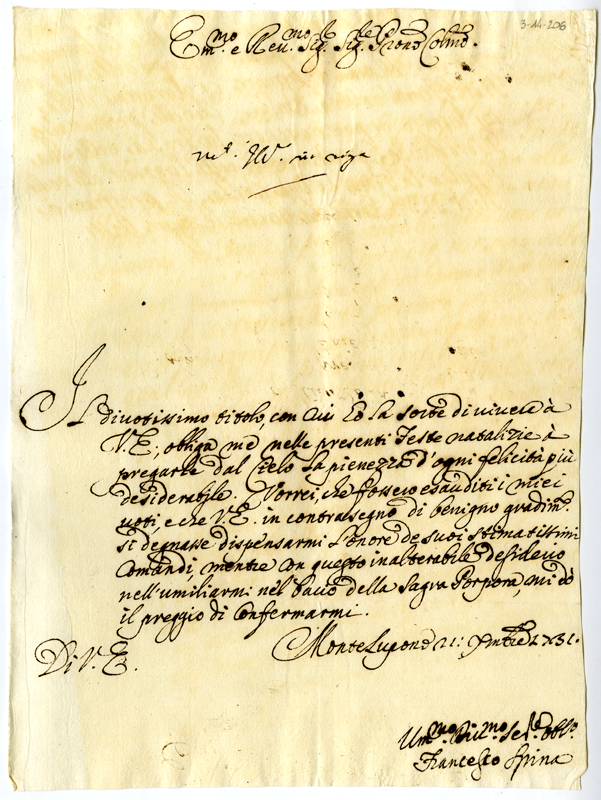 3-14-206
Em.mo e Reu.mo Sig.r Sig.re Pron Colmo.
Il diuotissimo titolo, con cui hò la sorte di viuere à
V. E., obliga me nelle presenti Feste natalizie à
pregarle dal Cielo la pienezza d'ogni felicità più
desiderabile. Vorrei, che fossero esauditi i miei
uoti, e che V. E. in contrasegno di benigno gradim.o
si degnasse dispensarmi l'onore de suoi stimatissimi
Comandi, mentre con questo inalterabile desiderio
nell'umiliarmi nel bacio della Sagra Porpora, mi dò
il preggio di confermarmi.
Di V. E.
Monte Lupone 21: Xmbre 1731.
Um.mo Diu.mo Se.re obl.o
Francesco Spina